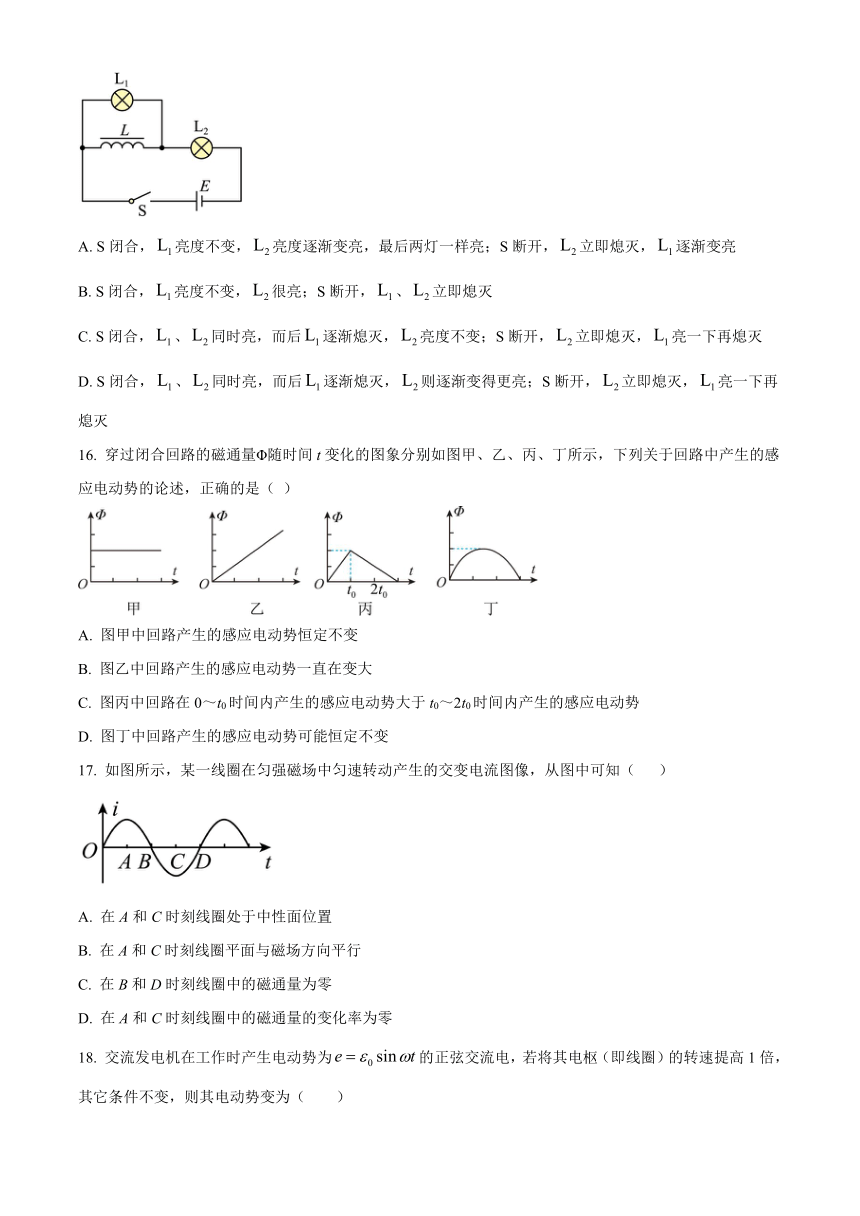 L₁
L
L₂
S
E
A. S 闭合，L₁亮度不变，L₂亮度逐渐变亮，最后两灯一样亮；S 断开，L₂立即熄灭，L₁逐渐变亮
B. S 闭合，L₁亮度不变，L₂很亮；S 断开，L₁、L₂立即熄灭
C. S 闭合，L₁、L₂同时亮，而后L₁逐渐熄灭，L₂亮度不变；S 断开，L₂立即熄灭，L₁亮一下再熄灭
D. S 闭合，L₁、L₂同时亮，而后L₁逐渐熄灭，L₂则逐渐变得更亮；S 断开，L₂立即熄灭，L₁亮一下再
熄灭
16. 穿过闭合回路的磁通量Φ随时间 t 变化的图象分别如图甲、乙、丙、丁所示，下列关于回路中产生的感
应电动势的论述，正确的是（ ）
Φ O t 甲
Φ O t 乙
Φ O t₀ 2t₀ t 丙
Φ O t 丁
A. 图甲中回路产生的感应电动势恒定不变
B. 图乙中回路产生的感应电动势一直在变大
C. 图丙中回路在 0～t₀时间内产生的感应电动势大于 t₀～2t₀时间内产生的感应电动势
D. 图丁中回路产生的感应电动势可能恒定不变
17. 如图所示，某一线圈在匀强磁场中匀速转动产生的交变电流图像，从图中可知（ ）
i
O A B C D t
A. 在 A 和 C 时刻线圈处于中性面位置
B. 在 A 和 C 时刻线圈平面与磁场方向平行
C. 在 B 和 D 时刻线圈中的磁通量为零
D. 在 A 和 C 时刻线圈中的磁通量的变化率为零
18. 交流发电机在工作时产生电动势为 e = ε₀ sin ωt 的正弦交流电，若将其电枢（即线圈）的转速提高 1 倍，
其它条件不变，则其电动势变为（ ）